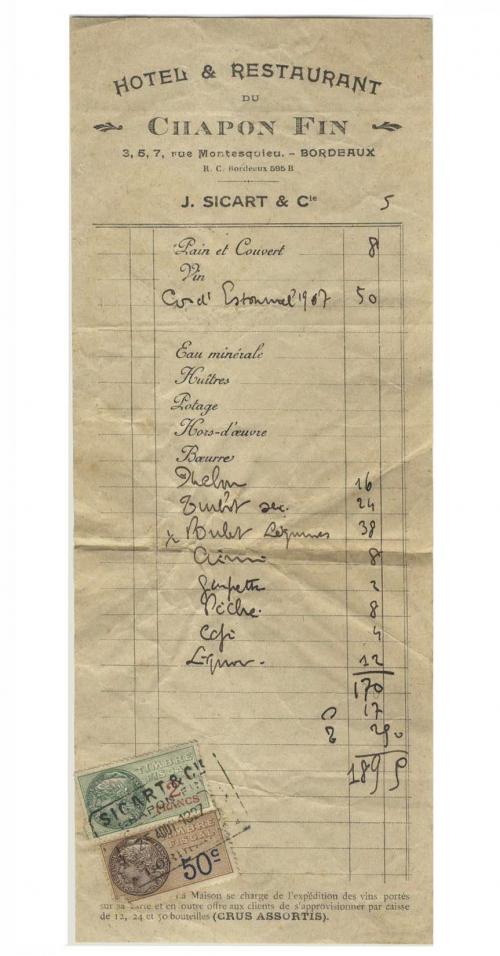 HOTEL & RESTAURANT
DU
CHAPON FIN
3, 5, 7, rue Montesquieu. - BORDEAUX
R. C. Bordeaux 595 B
J. SICART & Cie 5
Pain et Couvert 8
Vin
Cos d'Estournel 1907 50
Eau minérale
Huîtres
Potage
Hors-d'œuvre
Bœurre
Melon 16
Turbot 24
Poulet Légumes 38
8
2
Pêche 8
Café 4
Liqueur 12
170
17
189 5
TIMBRE
FISCAL
2
FRANCS
SICART & Cie
CHAPON FIN
AOUT
TIMBRE
FISCAL
50c
La Maison se charge de l'expédition des vins portés
sur sa carte et en outre offre aux clients de s'approvisionner par caisse
de 12, 24 et 50 bouteilles (CRUS ASSORTIS).